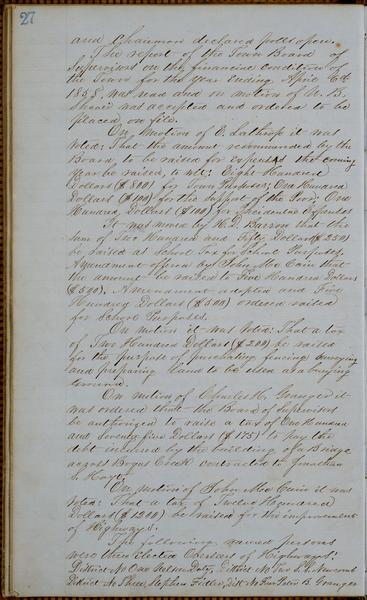 27
and Chairman declared polls open.
The report of the Town Board of
Supervisors on the financial condition of
the Town for the year ending April 6th
1858, was read and on motion of
was accepted and ordered to be
placed on file.
On motion of E. Lathrop it was
Voted: That the amount recommended by the
Board to be raised for expenses the coming
year be raised, to wit: Eight Hundred
Dollars ($800) for Town Purposes; One Hundred
Dollars ($100) for the support of the Poor; One
Hundred Dollars ($100) for incidental Expenses
It was moved by H. D. Barron that the
sum of Two Hundred and Fifty Dollars ($250)
be raised as School Tax for School Purposes.
Amendment offered by John McCain that
the amount be raised to Five Hundred Dollars
($500). Amendment adopted and Five
Hundred Dollars ($500) ordered raised
for School Purposes.
On motion it was Voted: That a tax
of Two Hundred Dollars ($200) be raised
for the purpose of purchasing fencing surveying
and preparing land to be used as a burying
ground.
On motion of Charles H. Granger it
was ordered that the Board of Supervisors
be authorized to raise a tax of One Hundred
and Seventy five Dollars ($175) to pay the
debt incurred by the building of a Bridge
across Bogus Creek contracted to Jonathan
Hoyt.
On motion of John McCain it was
Voted: That a tax of Twelve Hundred
Dollars ($1200) be raised for the improvement
of Highways.
The following named persons
were then elected Overseers of Highways:
District No One Duty, District No Two Newcomb
District No Three, Stephen Dist. No Four Peter B. Granger